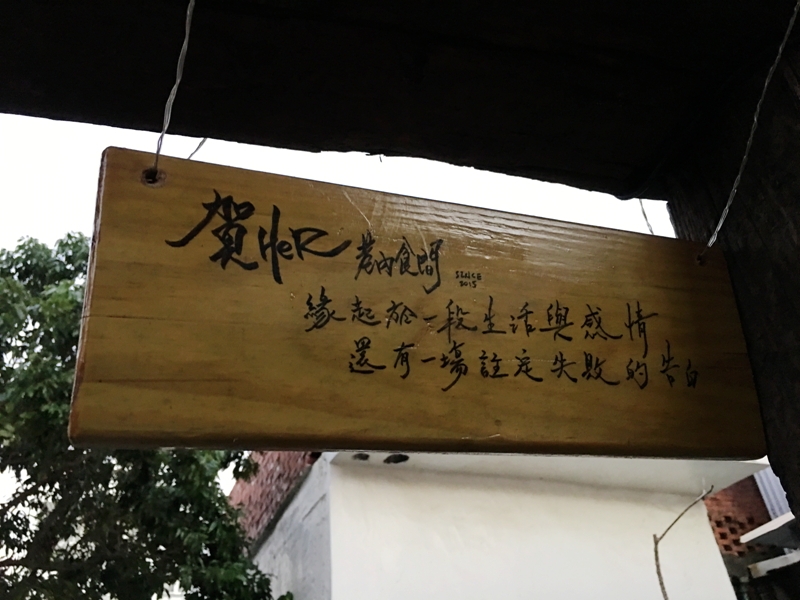 賀HeR 巷內食間 SINCE 2015
緣起於一段生活與感情
還有一場註定失敗的告白